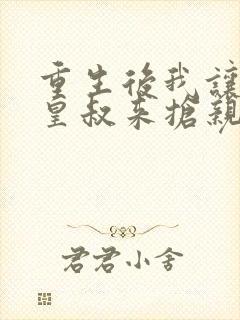 重生後我讓
皇叔來搶親
君君小舍